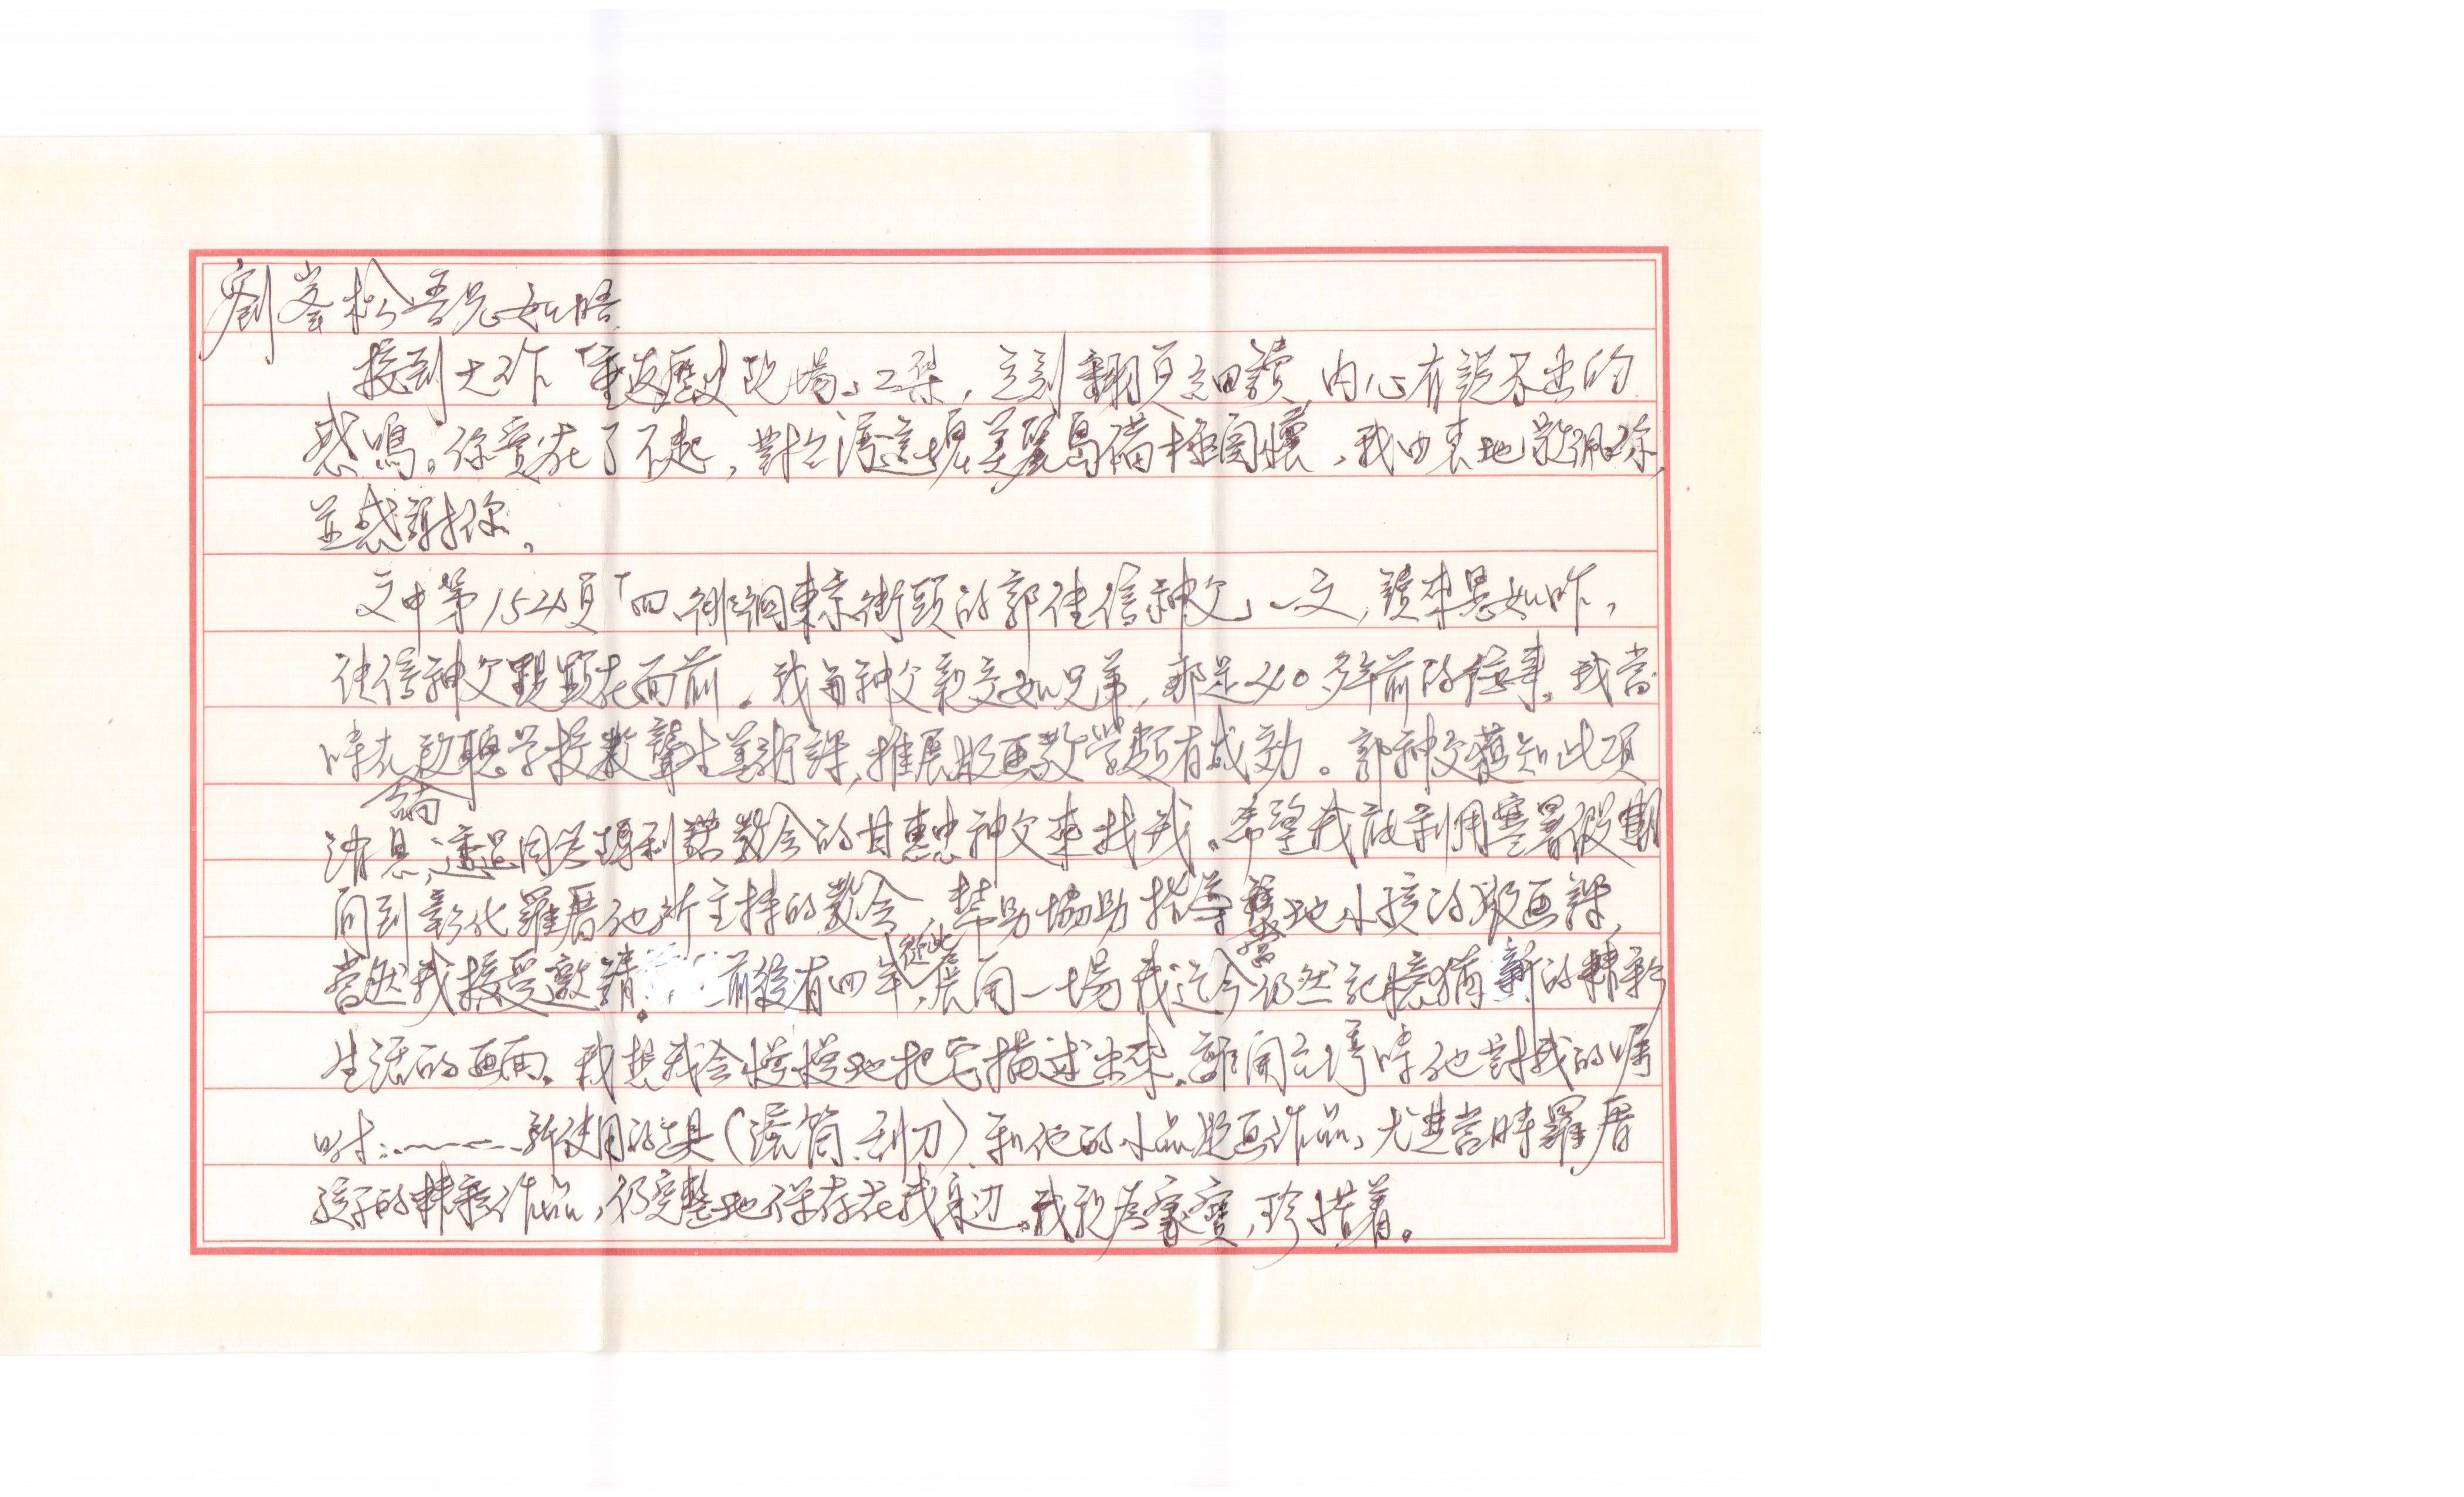 劉峯松吾兄如晤
接到大作「重返歷史現場」二冊,立刻翻頁細讀,內心有說不出的
感鳴。你實在了不起,對台灣這塊美麗島備極關懷,我由衷地敬佩你,
並感謝你。
文中第154頁「四、徘徊東京街頭的郭佳信神父」一文,讀來恍如昨,
佳信神父顯在面前。我與神父親交如兄弟,那是40多年前的往事。我當
時在啟聰學校教聾生美術課,推展版畫教學頗有成効。郭神父獲知此項
消息,透過同是瑪利諾教會的甘惠忠神父來找我。希望我能利用寒暑假期
間到彰化羅厝他所主持的教會,幫助協助指導當地小孩的版画課,
當然我接受邀請。前後有四年,從此展開一場我迄今仍然記憶猶新的精彩
生活的画面。我想我會慢慢地把它描述出來。離開台灣時他對我的囑
咐:……所使用的工具(滾筒、刮刀)和他的小品版画作品,尤其當時羅厝
孩子的精彩作品,仍完整地保存在我身边。我視為家寶,珍惜着。